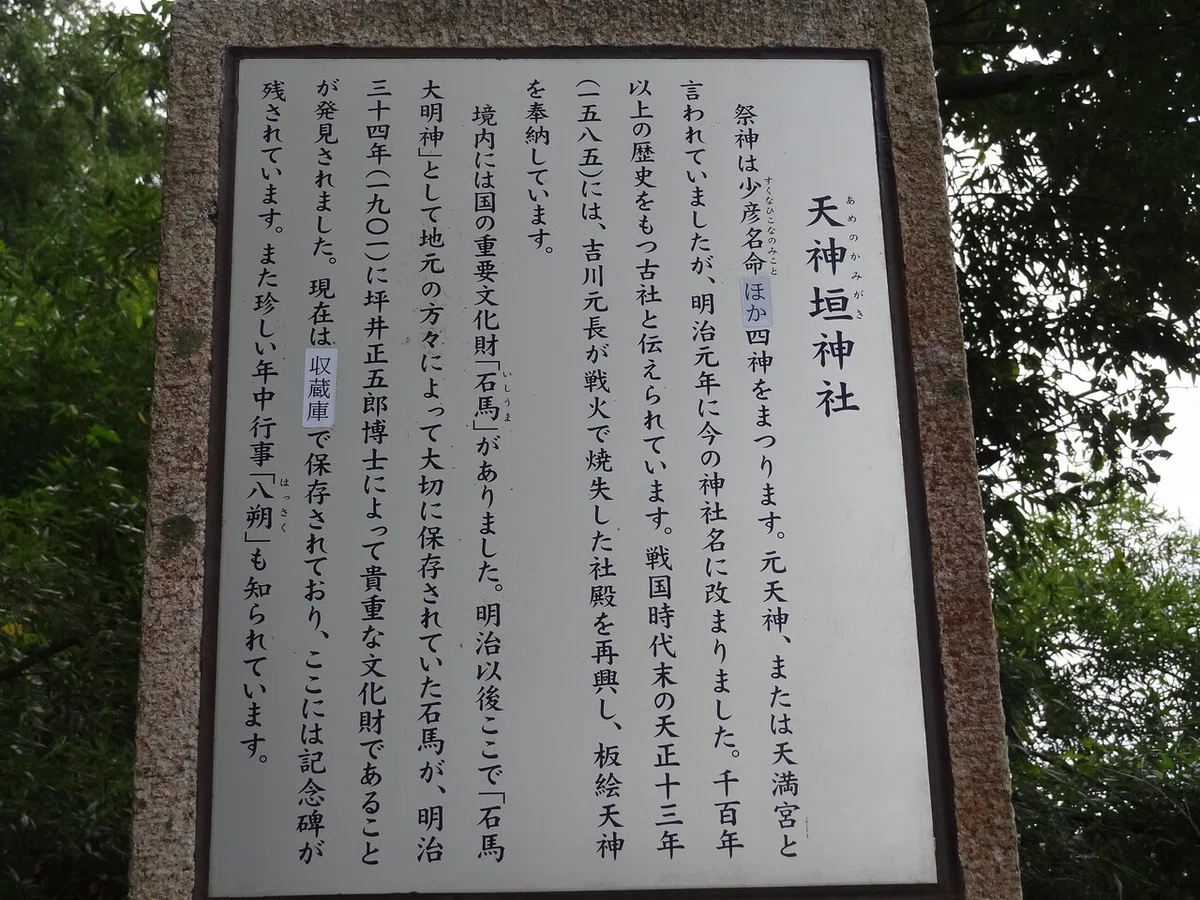 天神垣神社
あめのかみがき
祭神は少彦名命ほか四神をまつります。元天神、または天満宮と
すくなひこなのみこと
言われていましたが、明治元年に今の神社名に改まりました。千百年
以上の歴史をもつ古社と伝えられています。戦国時代末の天正十三年
(一五八五)には、吉川元長が戦火で焼失した社殿を再興し、板絵天神
を奉納しています。
境内には国の重要文化財「石馬」がありました。明治以後ここで「石馬
いしうま
大明神」として地元の方々によって大切に保存されていた石馬が、明治
三十四年(一九〇一)に坪井正五郎博士によって貴重な文化財であること
が発見されました。現在は収蔵庫で保存されており、ここには記念碑が
残されています。また珍しい年中行事「八朔」も知られています。
はっさく